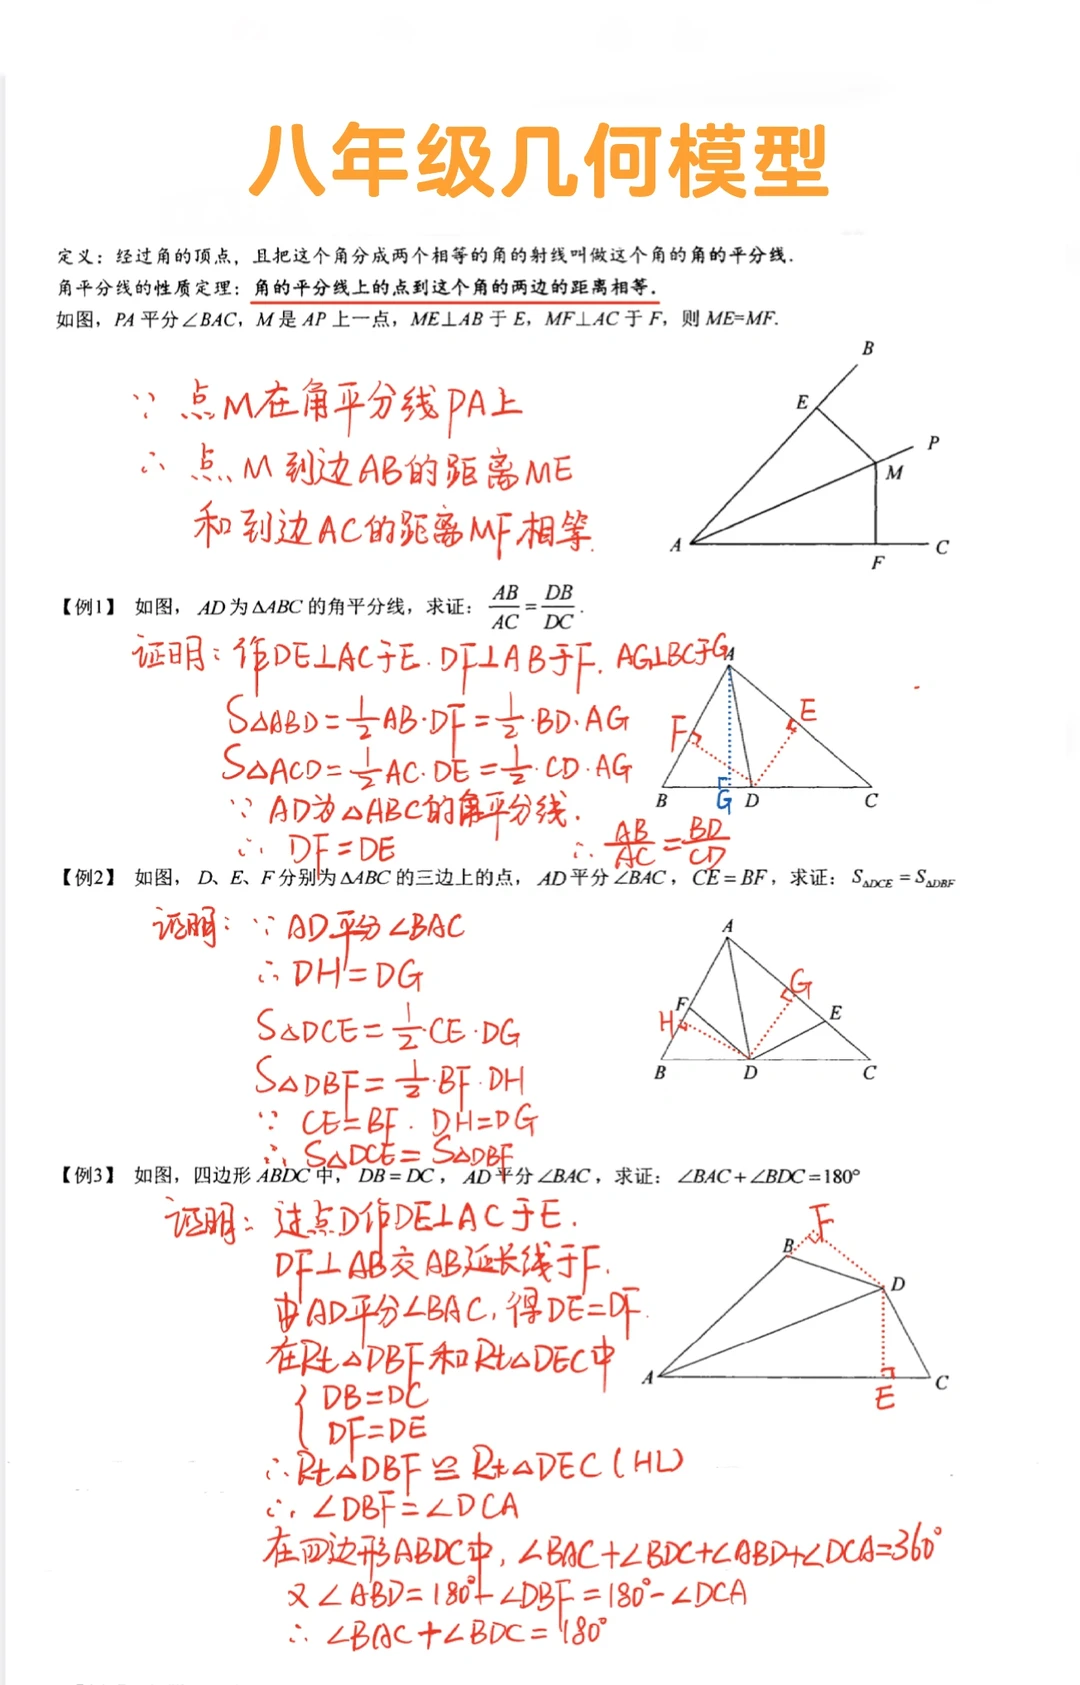 八年级几何模型
定义：经过角的顶点，且把这个角分成两个相等的角的射线叫做这个角的角的平分线．
角平分线的性质定理：角的平分线上的点到这个角的两边的距离相等．
如图，PA 平分∠BAC，M 是 AP 上一点，ME⊥AB 于 E，MF⊥AC 于 F，则 ME=MF.
∵ 点M在角平分线PA上
∴ 点M到边AB的距离ME
和到边AC的距离MF相等.
B
E
P
M
A
F
C
【例1】 如图， AD 为 △ABC 的角平分线，求证： AB/AC = DB/DC .
证明：作DE⊥AC于E. DF⊥AB于F. AG⊥BC于G
S△ABD = 1/2 AB·DF = 1/2·BD·AG
S△ACD = 1/2 AC·DE = 1/2·CD·AG
∵ AD为△ABC的角平分线.
∴ DF=DE ∴ AB/AC = BD/CD
A
F
E
B
G
D
C
【例2】 如图， D、E、F 分别为 △ABC 的三边上的点， AD 平分 ∠BAC ， CE = BF ，求证： S△DCE = S△DBF
证明：∵ AD平分∠BAC
∴ DH=DG
S△DCE = 1/2·CE·DG
S△DBF = 1/2·BF·DH
∵ CE=BF. DH=DG
∴ S△DCE = S△DBF
A
G
F
E
H
B
D
C
【例3】 如图，四边形 ABDC 中， DB = DC ， AD 平分 ∠BAC ，求证： ∠BAC + ∠BDC = 180°
证明：过点D作DE⊥AC于E.
DF⊥AB交AB延长线于F.
由AD平分∠BAC，得DE=DF.
在Rt△DBF和Rt△DEC中
{ DB=DC
DF=DE
∴ Rt△DBF≌Rt△DEC (HL)
∴ ∠DBF=∠DCA
在四边形ABDC中，∠BAC+∠BDC+∠ABD+∠DCA=360°
又∠ABD=180°-∠DBF=180°-∠DCA
∴ ∠BAC+∠BDC=180°
F
B
D
A
E
C